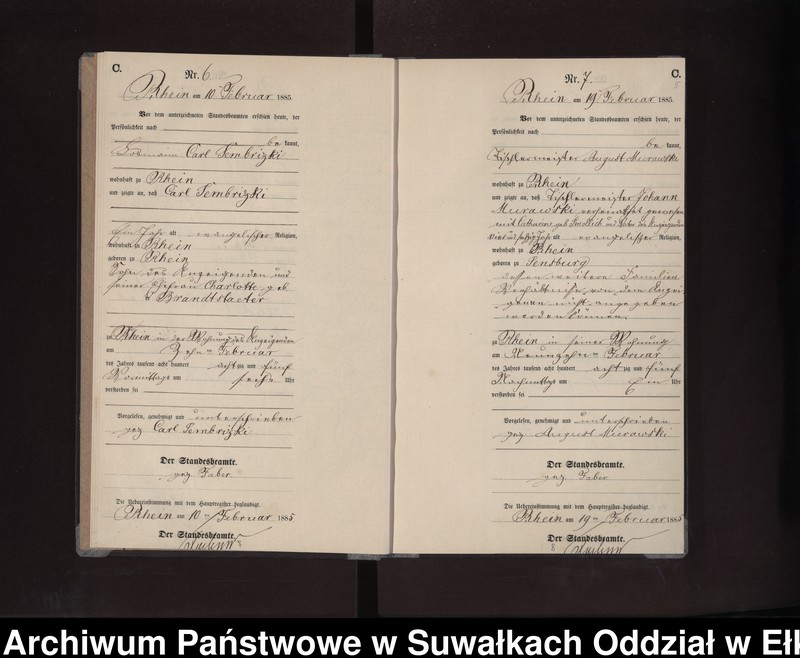 C.
Nr. 6.
Rhein am 10ten Februar 1885.
Vor dem unterzeichneten Standesbeamten erschien heute, der
Persönlichkeit nach
be kannt,
Carl Tembrizki
wohnhaft zu Rhein
und zeigte an, daß Carl Tembrizki
Ein Jahr alt evangelischer Religion,
wohnhaft zu Rhein
geboren zu Rhein
Sohn des Anzeigenden und
seiner Ehefrau Charlotte geb.
Brandtstaeter
zu Rhein in der Wohnung des Anzeigenden
am Zehnten Februar
des Jahres tausend acht hundert acht zig und fünf
Vormittags um sechs Uhr
verstorben sei
Vorgelesen, genehmigt und unterschrieben
gez. Carl Tembrizki
Der Standesbeamte.
gez. Faber
Die Uebereinstimmung mit dem Hauptregister beglaubigt.
Rhein am 10ten Februar 1885
Der Standesbeamte.
C.
Nr. 7.
Rhein am 19ten Februar 1885.
Vor dem unterzeichneten Standesbeamten erschien heute, der
Persönlichkeit nach
be kannt,
Tischlermeister August Murawski
wohnhaft zu Rhein
und zeigte an, daß Tischlermeister Johann
Murawski verheirathet gewesen
mit Catharine geb. und Vater des Anzeigenden
alt evangelischer Religion,
wohnhaft zu Rhein
geboren zu Sensburg
dessen weitere Familien
Verhältnisse von dem Anzei-
genden nicht angegeben
werden können.
zu Rhein in seiner Wohnung
am Neunzehnten Februar
des Jahres tausend acht hundert acht zig und fünf
Nachmittags um Ein Uhr
verstorben sei
Vorgelesen, genehmigt und unterschrieben
gez. August Murawski
Der Standesbeamte.
gez. Faber
Die Uebereinstimmung mit dem Hauptregister beglaubigt.
Rhein am 19ten Februar 1885
Der Standesbeamte.
Archiwum Państwowe w Suwałkach Oddział w Ełk